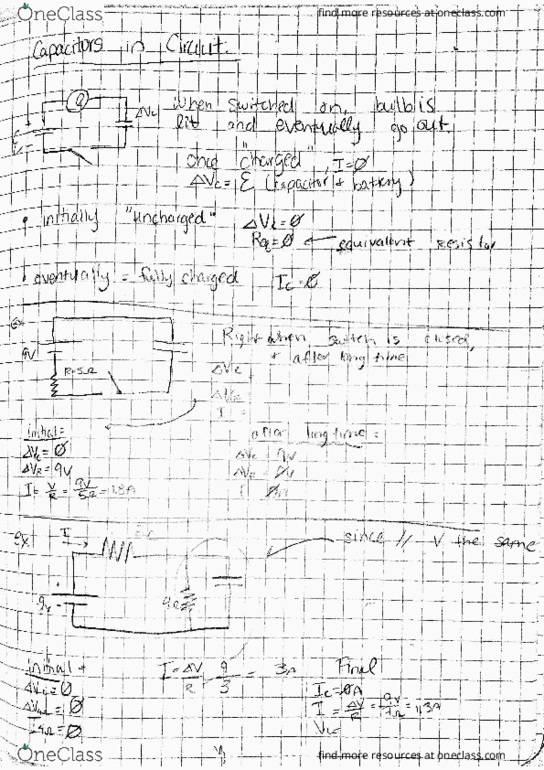 OneClass
find more resources at oneclass.com
Capacitors in Circuit.
ΔVc
When switched on, bulb is
lit and eventually go out.
once "charged", I=0
ΔVc = ℰ (capacitor + battery)
• initially "uncharged" ΔVc=0
Req=0 ← equivalent resistor
• eventually = fully charged Ic=0
ex
9V
R=5Ω
Right when switch is closed,
+ after long time
ΔVc
I
initial=
ΔVc = 0
ΔVR = 9V
I = V/R = 9V/5Ω = 1.8A
after long time =
ΔVc 9V
ex
I
9V
since // V the same
initial
ΔVc = 0
I = ΔV/R 9/3 = 3A
Final
Ic=0A
I = ΔV/R = 9V/7Ω = 1.3A
OneClass
find more resources at oneclass.com